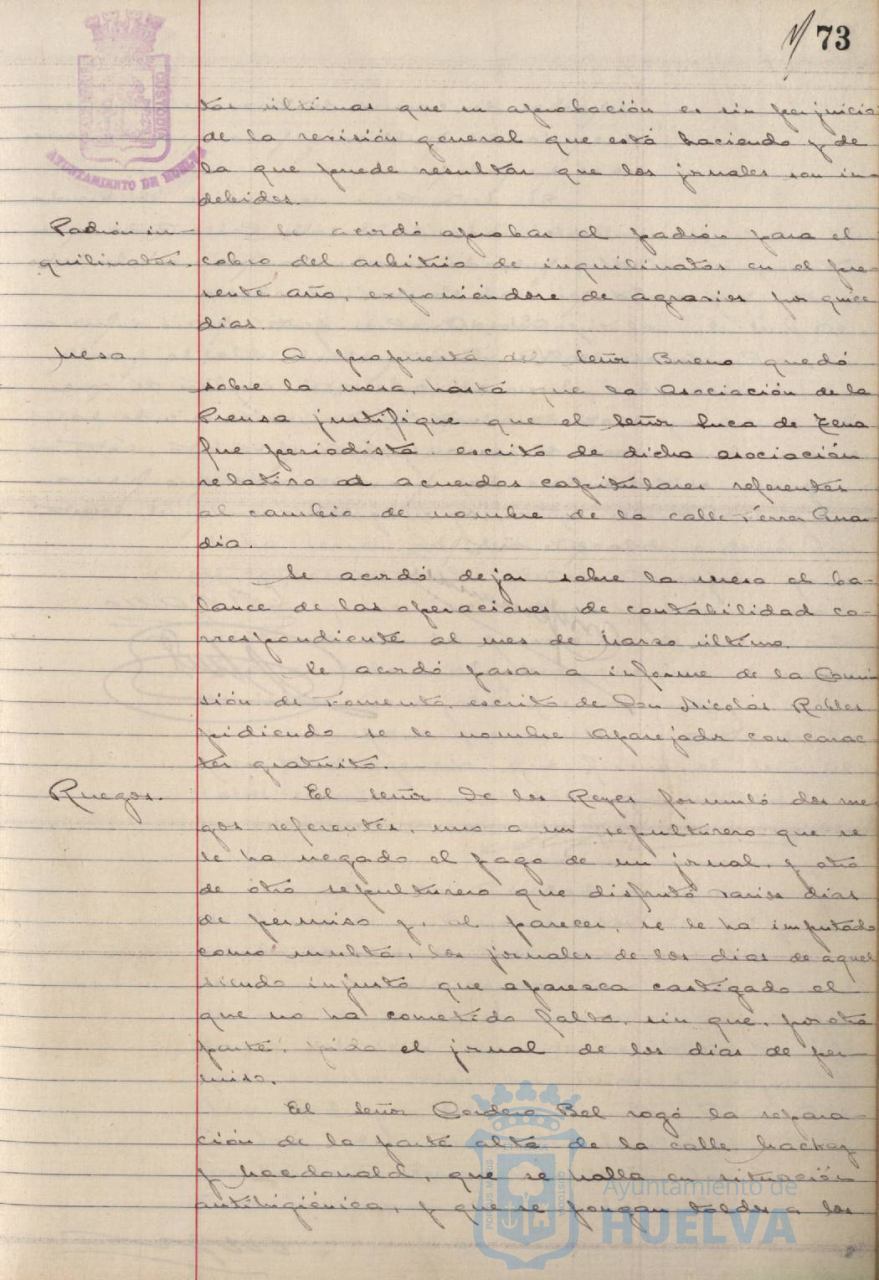 73
AYUNTAMIENTO DE HUELVA
tas últimas que su aprobación es sin perjuicio
de la revisión general que está haciendo y de
la que puede resultar que los jornales son in-
debidos.
Padrón in-
quilinatos.
Se acordó aprobar el padrón para el
cobro del arbitrio de inquilinatos en el pre-
sente año, exponiéndose de agravios por quice
días.
Mesa
A propuesta del Señor Bueno quedó
sobre la mesa, hasta que la Asociación de la
Prensa justifique que el Señor Luca de Tena
fue periodista, escrito de dicha asociación
relativo a acuerdos capitulares referentes
al cambio de nombre de la calle Ferrer Guar-
dia.
Se acordó dejar sobre la mesa el ba-
lance de las operaciones de contabilidad co-
rrespondiente al mes de Marzo último.
Se acordó pasar a informe de la Comi
sión de Fomento, escrito de Don Nicolás Robles
pidiendo se le nombre Aparejador con carac-
ter gratuito.
Ruegos.
El Señor De los Reyes formuló dos rue-
gos referentes, uno a un sepulturero que se
le ha negado el pago de un jornal, y otro
de otro sepulturero que disfrutó varios días
de permiso y, al parecer, se le ha imputado
como multa, los jornales de los días de aquel
siendo injusto que aparezca castigado el
que no ha cometido falta, sin que, por otra
parte, pida el jornal de los días de per-
miso.
El Señor Cordero Bel rogó la repara-
ción de la parte alta de la calle Mackay
y Macdonald, que se halla en situación
antihigiénica, y que se pongan toldos a los
Ayuntamiento de
HUELVA